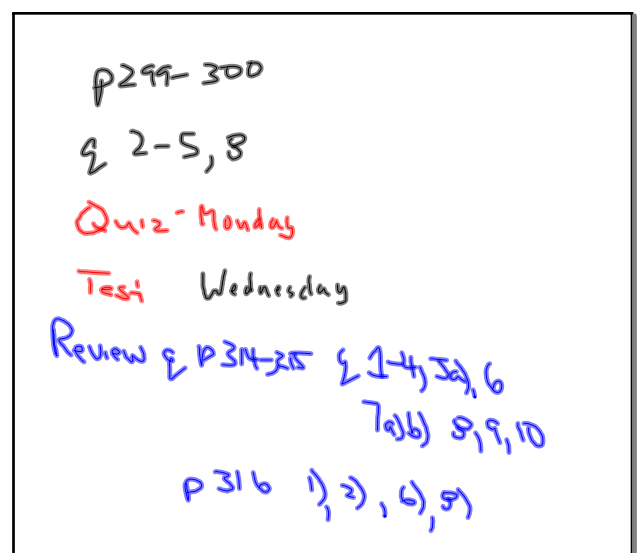 p299-300
q 2-5, 8
Quiz - Monday
Test Wednesday
Review q p314-315 q 1-4, 5a), 6
7a)b) 8, 9, 10
p 316 1), 2), 6), 8)